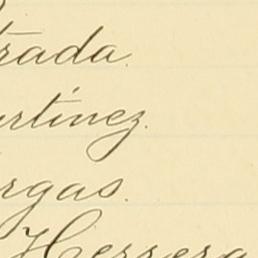 rada.
rtínez.
rgas.
Herrera